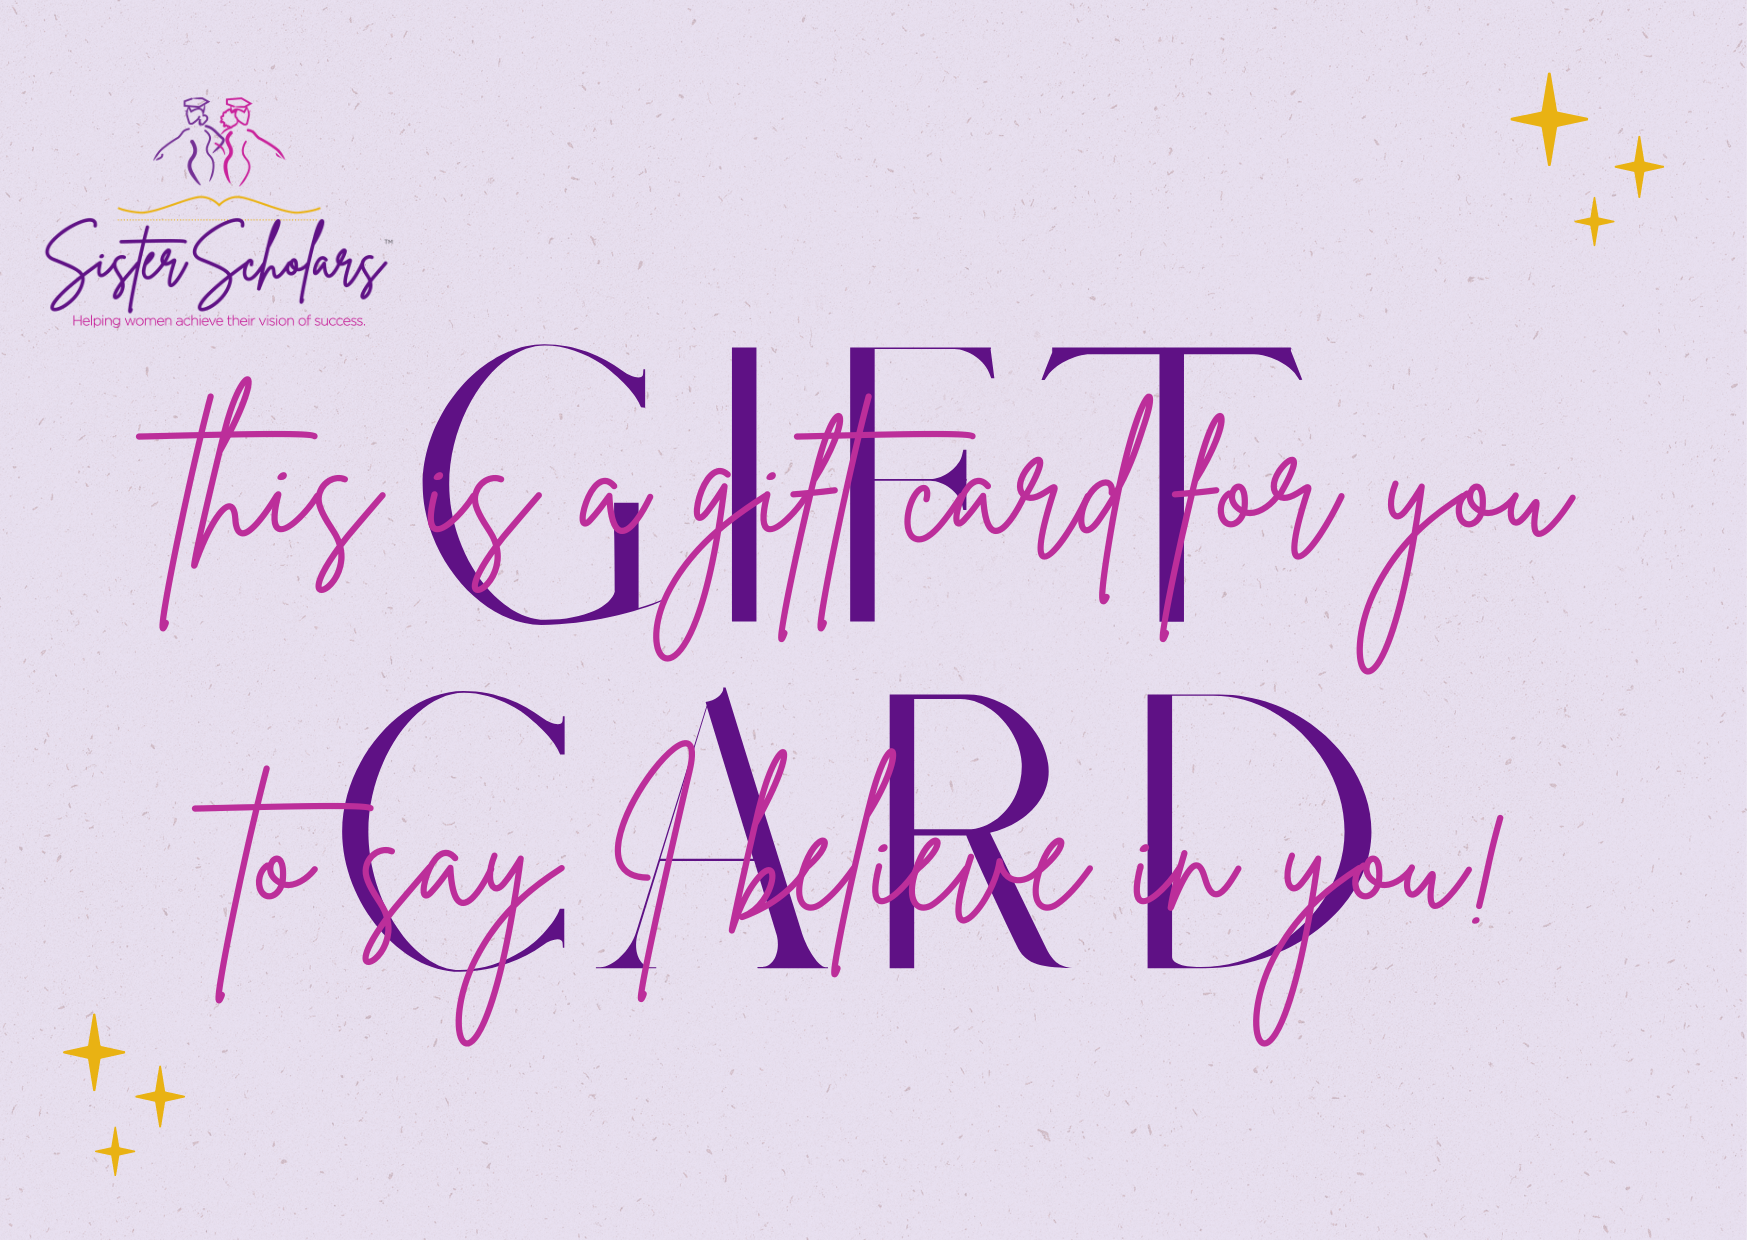 Sister Scholars™
Helping women achieve their vision of success.
GIFT
this is a gift card for you
CARD
to say I believe in you!